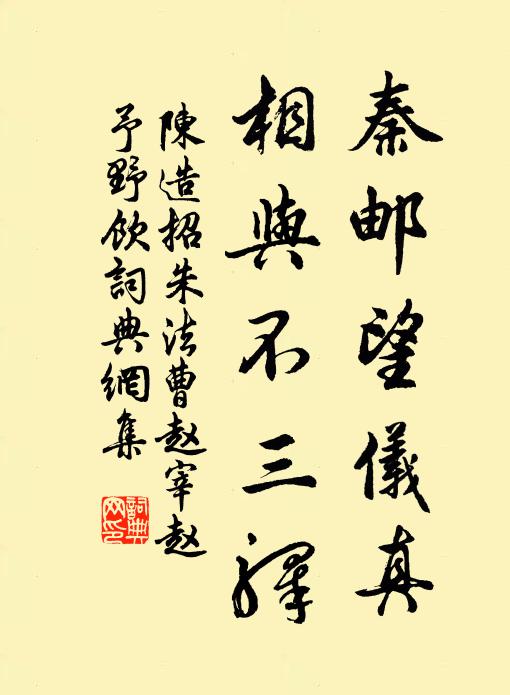 秦邮望儀真
相與不三驛
陳造招朱法曹赵宰赵
予野飲詞典網集
詞典網印